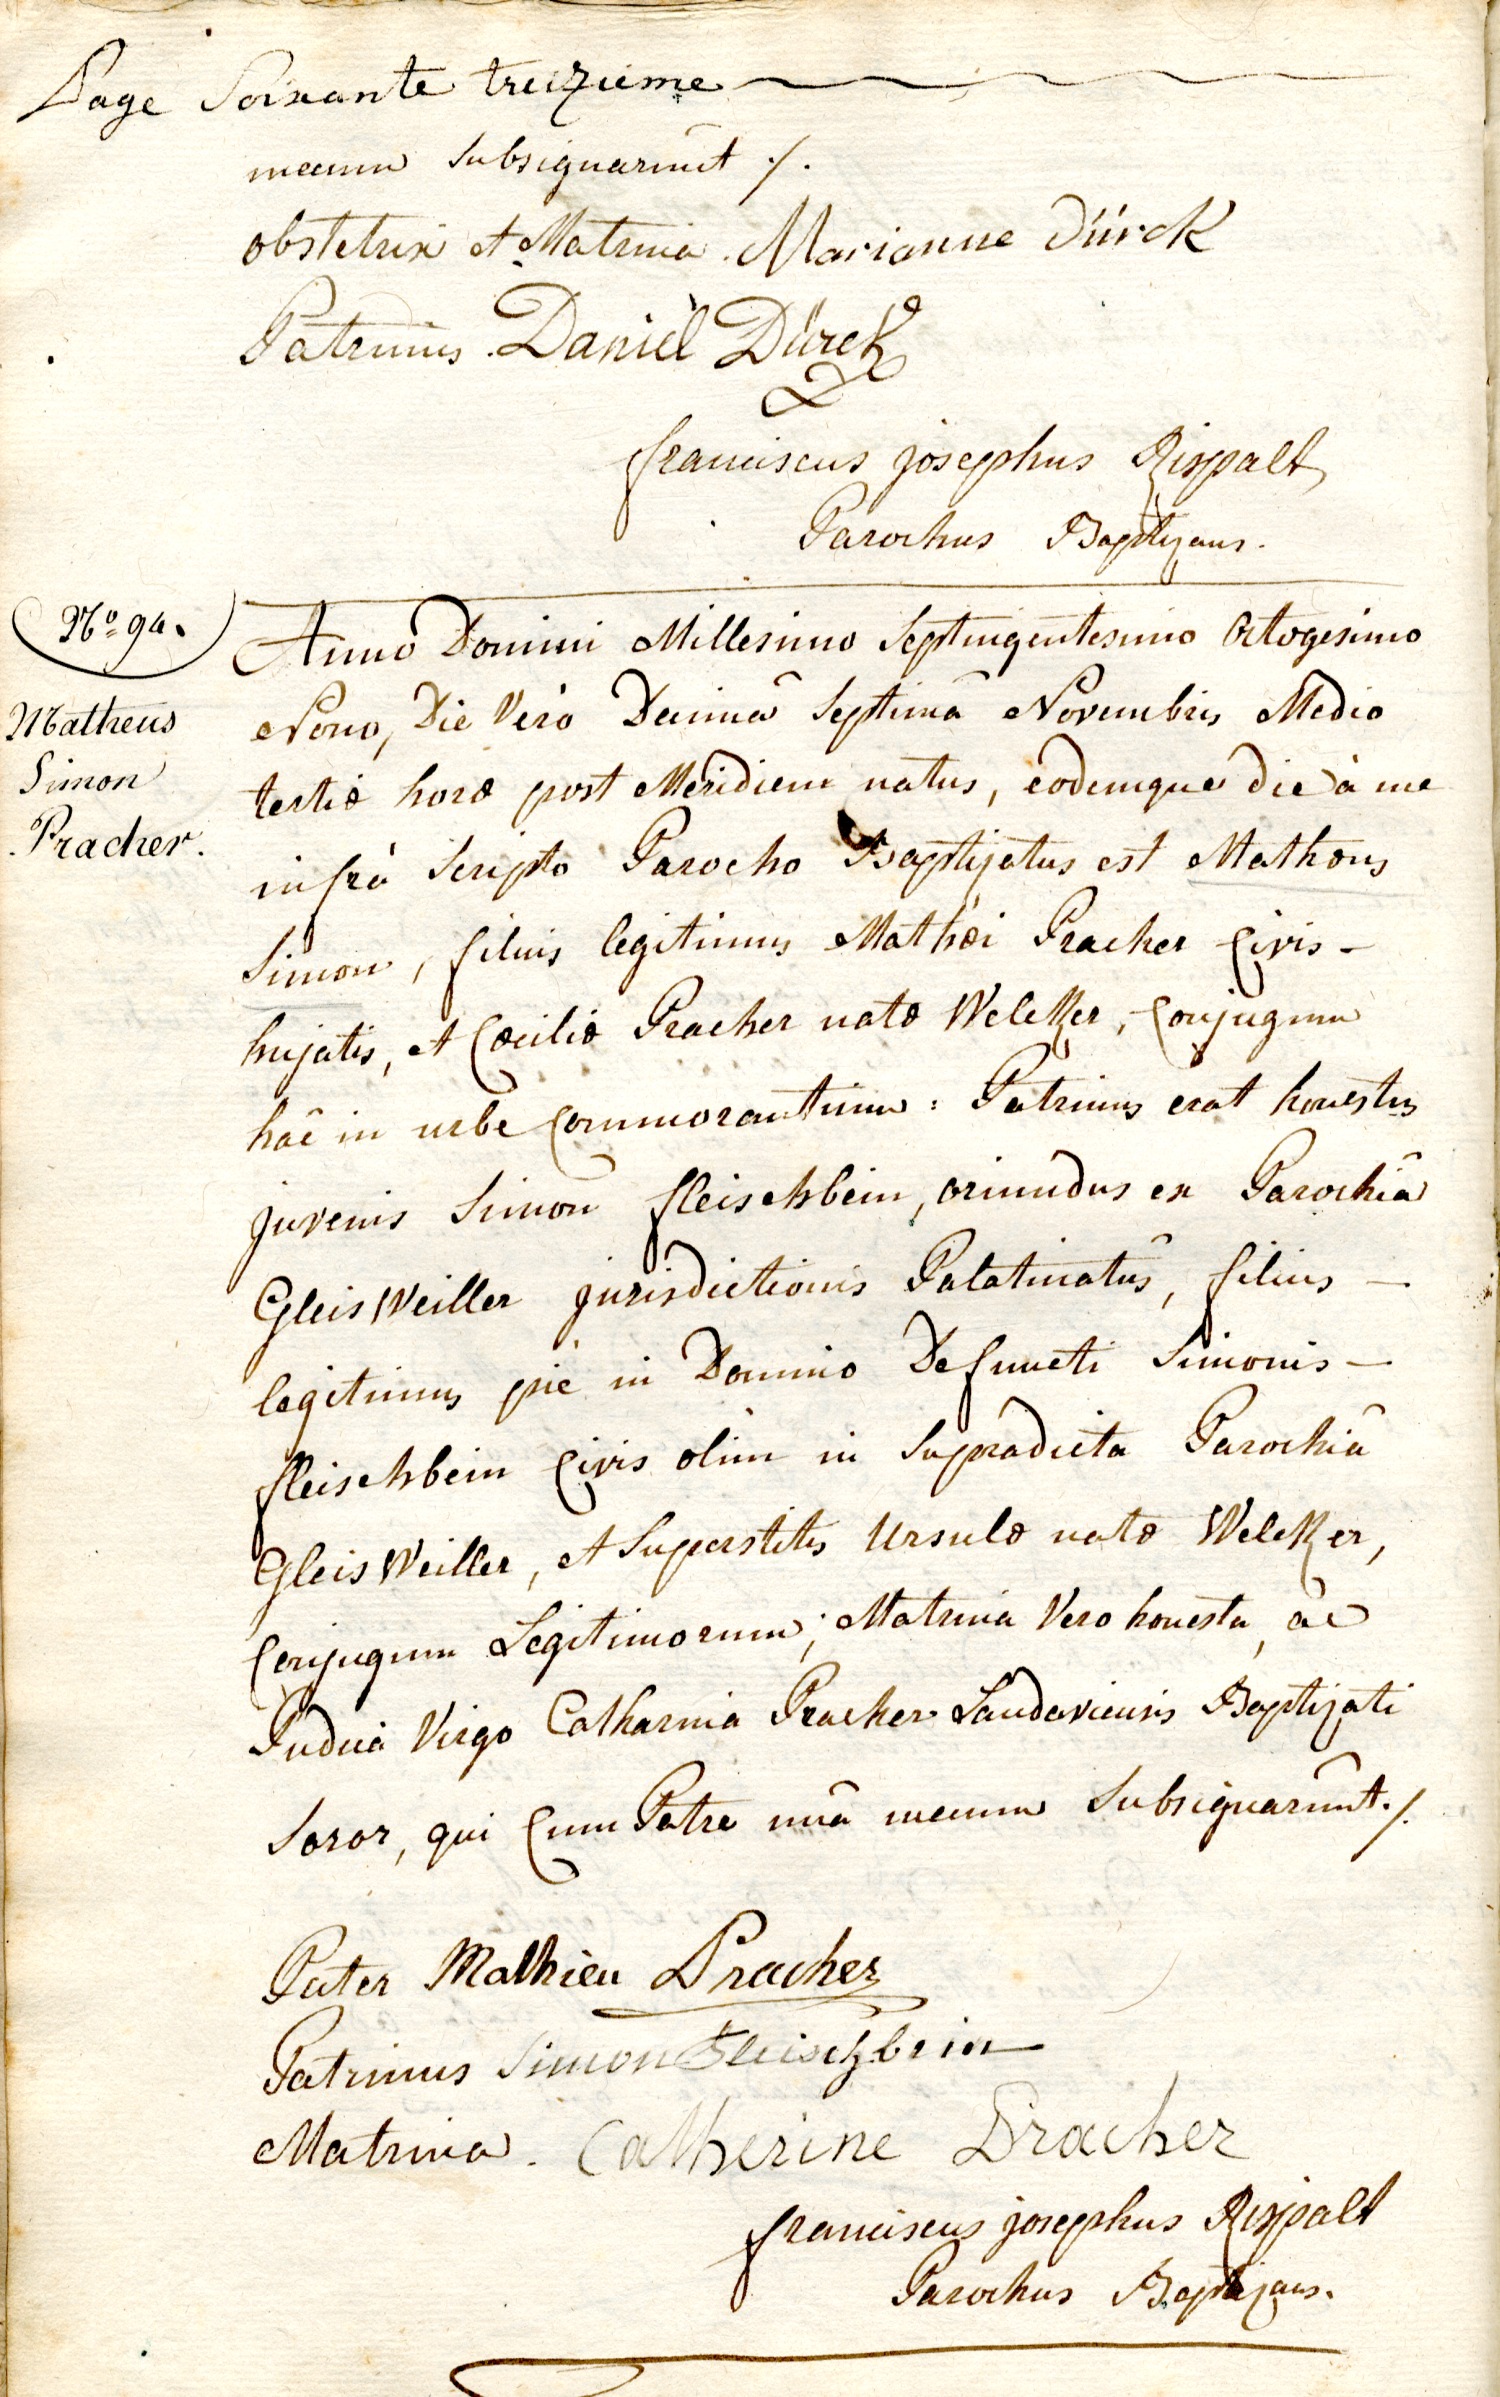 Page Soixante treizieme
mecum subsignarunt ./.
obstetrix et Matrina. Marianne Dürck
Patrinus. Daniel Dürck
franciscus josephus Rispalt
Parochus Baptizans.
No 94.
Matheus
Simon
Pracher.
Anno Domini Millesimo Septingentesimo Octogesimo
Nono, Die Vero Decimâ Septimâ Novembris Mediо
tertiæ horæ post Meridiem natus, eodemque die à me
infrà Scripto Parocho Baptizatus est Mathæus
Simon, filius legitimus Mathæi Pracher Civis -
hujatis, et Cæciliæ Pracher natæ Welcker, Conjugum
hâc in urbe Commorantium : Patrinus erat honestus
juvenis Simon fleischbein, oriundus ex Parochiâ
GleisWeiller jurisdictionis Palatinatûs, filius -
legitimus piè in Domino Defuncti Simonis -
fleischbein Civis olim in Supradicta Parochiâ
GleisWeiller, et Superstitis Ursulæ natæ Welcker,
Conjugum Legitimorum; Matrina Vero honesta, ac
Pudica Virgo Catharina Pracher Landaviensis Baptizati
Soror, qui Cum Patre unâ mecum Subsignarunt ./.
Pater Mathieu Pracher
Patrinus Simon Fleischbein
Matrina. Catherine Pracher
franciscus josephus Rispalt
Parochus Baptizans.